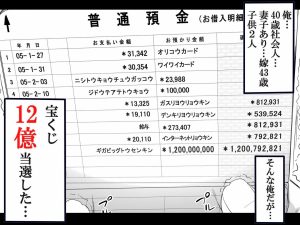 俺…
40歳社会人…
妻子あり…嫁43歳
子供2人
普通預金
(お借入明細
年月日
お支払い金額
お預かり金額
1 05-1-27 *31,342 オリコウカード
2 05-1-31 *30,354 ワイワイカード
3 05-2-03 ニシトウキョウチュウガッコウ *23,988
4 05-2-10 ジドウテアテトウキョウ *100,000
*13,325 ガスリヨウリョウキン *812,931
*19,110 デンキリヨウリョウキン *539,524
給与 *273,407 *812,931
*20,110 インターネットリョウキン *792,821
ギガビッグトウセンキン *1,200,000,000 *1,200,792,821
そんな俺だが…
宝くじ
12億
当選した…